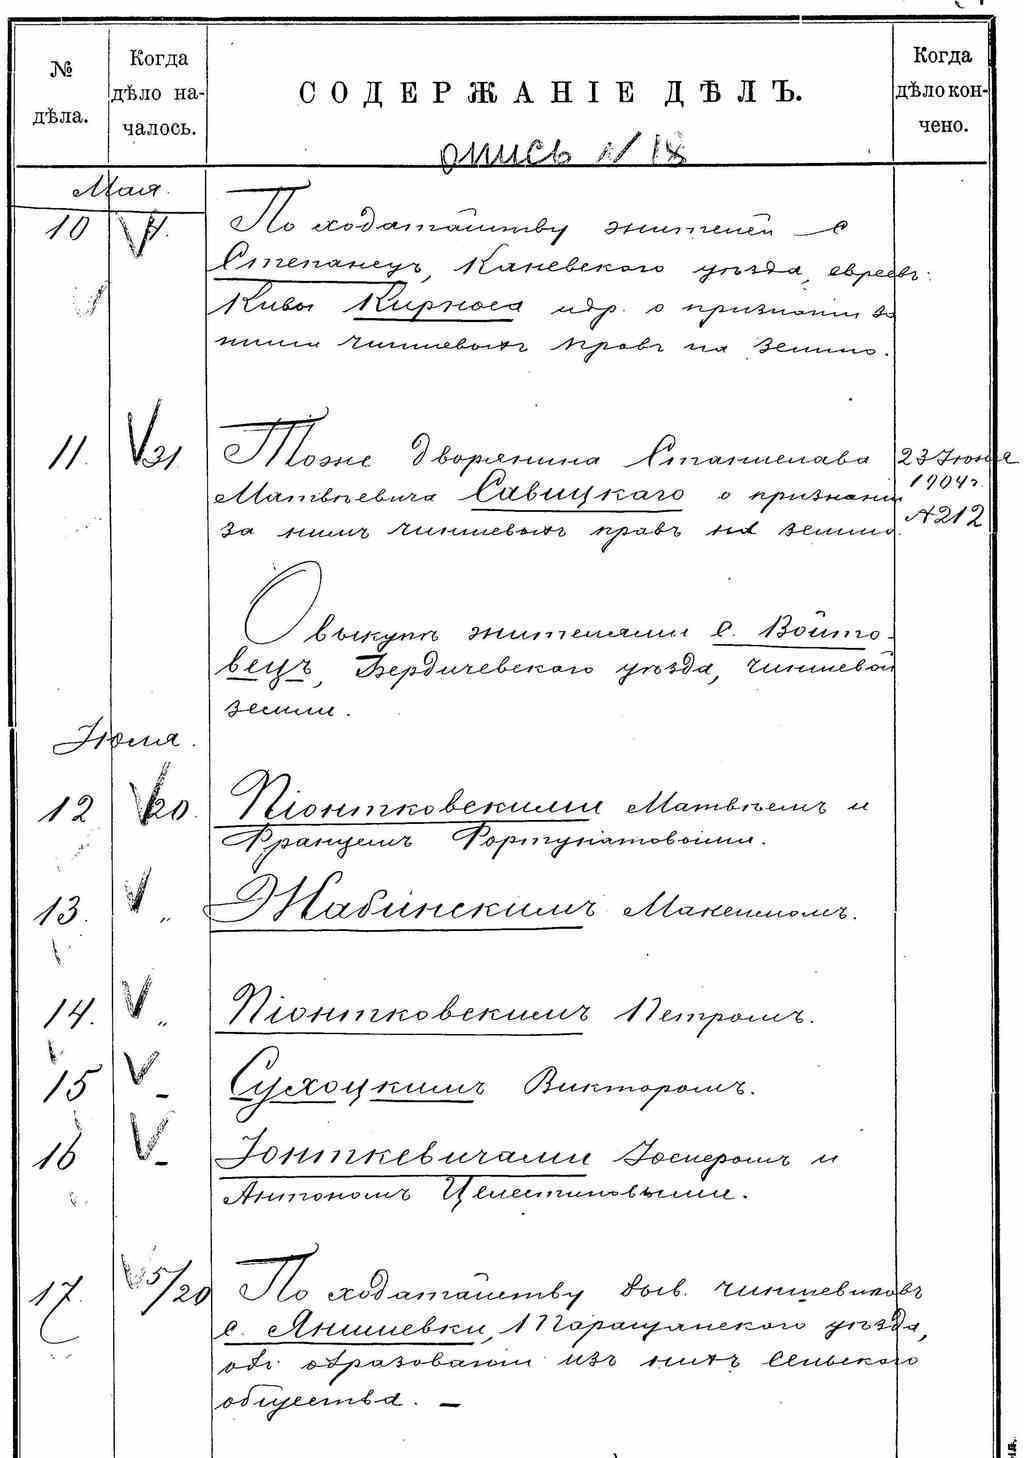 № дѣла.
Когда дѣло началось.
СОДЕРЖАНІЕ ДѢЛЪ.
Когда дѣло кончено.
опись N 18
Мая.
10 4.
По ходатайству жителей с
Степанецъ, Каневскаго уѣзда, евреевъ:
Кивы Кирноса и др. о признаніи за
ними чиншевыхъ правъ на землю.
11. 31
Тоже дворянина Станислава
23 Іюня
Матвѣевича Савицкаго о признаніи
1904 г.
за нимъ чиншевыхъ правъ на землю.
№ 212
О выкупѣ жителями с. Войто-
вецъ, Бердичевскаго уѣзда, чиншевой
земли.
Іюля.
12 20.
Піонтковскими Матвѣемъ и
Францемъ Фортунатовыми.
13. "
Жабинскимъ Максимомъ.
14. "
Піонтковскимъ Петромъ.
15 –
Сухоцкимъ Викторомъ.
16 –
Іонткевичами Іосифомъ и
Антономъ Целестиновыми.
17. 5/20
По ходатайству быв. чиншевиковъ
с. Янишевки, Таращанскаго уѣзда,
объ образованіи изъ нихъ сельскаго
общества. –